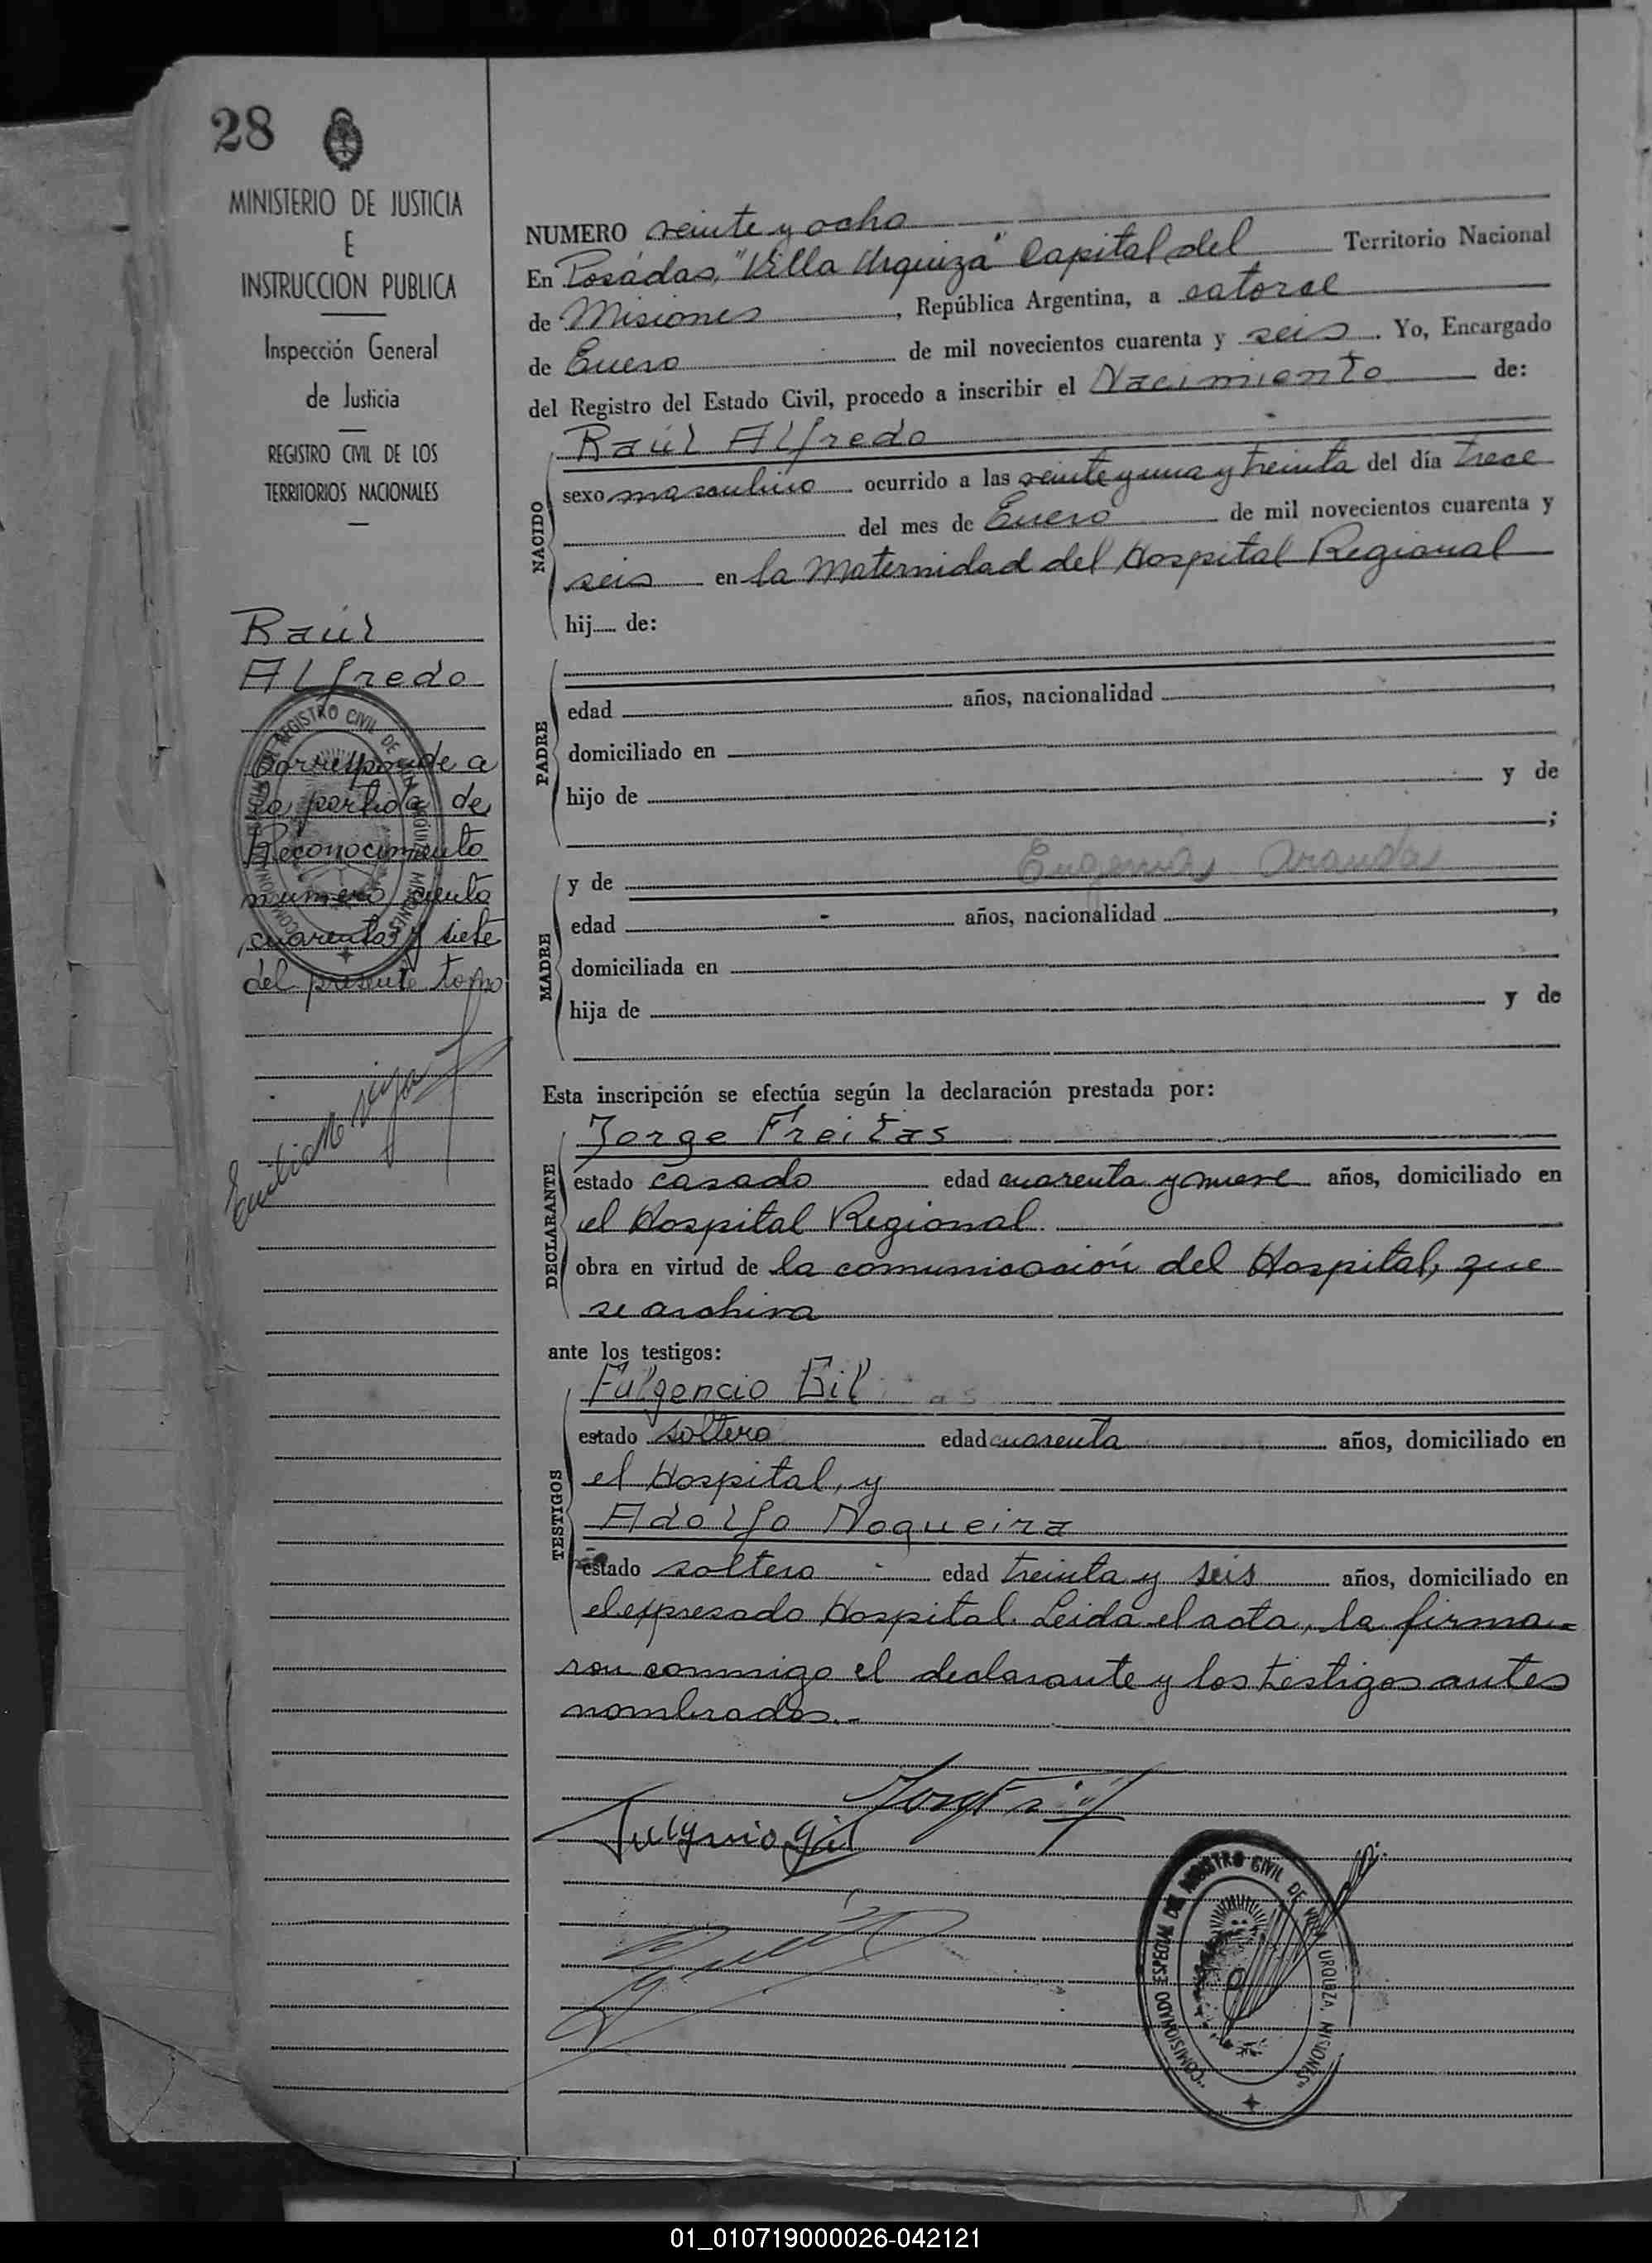 28
MINISTERIO DE JUSTICIA
E
INSTRUCCION PUBLICA
Inspección General
de Justicia
REGISTRO CIVIL DE LOS
TERRITORIOS NACIONALES
Raúl
Alfredo
Corresponde a
la partida de
Reconocimiento
numero ciento
cuarenta y siete
del presente tomo
NUMERO veinte y ocho
En Posadas, "Villa Urquiza" Capital del Territorio Nacional
de Misiones, República Argentina, a catorce
de Enero de mil novecientos cuarenta y seis. Yo, Encargado
del Registro del Estado Civil, procedo a inscribir el Nacimiento de:
NACIDO
Raúl Alfredo
sexo masculino ocurrido a las veinte y una y treinta del día trece
del mes de Enero de mil novecientos cuarenta y
seis en la Maternidad del Hospital Regional
hij de:
PADRE
edad años, nacionalidad ,
domiciliado en
hijo de y de
;
MADRE
y de Eugenia Aranda
edad años, nacionalidad ,
domiciliada en
hija de y de
Esta inscripción se efectúa según la declaración prestada por:
DECLARANTE
Jorge Freitas
estado casado edad cuarenta y nueve años, domiciliado en
el Hospital Regional.
obra en virtud de la comunicación del Hospital, que
se archiva
ante los testigos:
TESTIGOS
Fulgencio Gil
estado soltero edad cuarenta años, domiciliado en
el Hospital, y
Adolfo Nogueira
estado soltero edad treinta y seis años, domiciliado en
el expresado Hospital. Leida el acta, la firma-
ron conmigo el declarante y los testigos antes
nombrados.-
Fulgencio Gil
COMISIONADO ESPECIAL DEL REGISTRO CIVIL DE VILLA URQUIZA, MISIONES
01_010719000026-042121